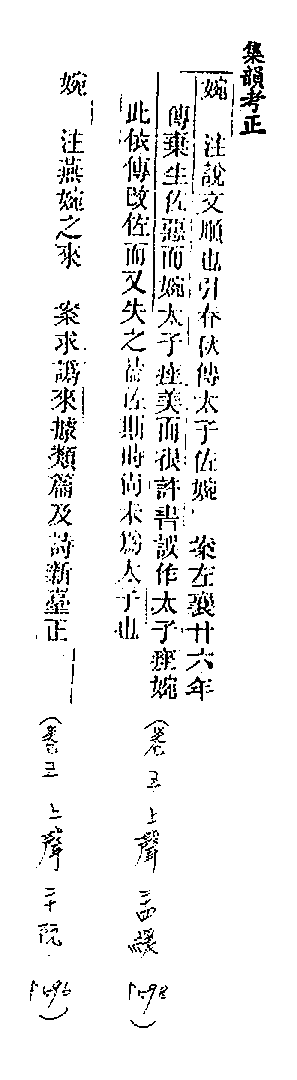 集韻考正
婉 注說文順也引春秋傳太子佐婉 案左襄廿六年
傳棄生佐惡而婉太子痤美而很許書誤作太子痤婉
此依傳改佐而又失之葢佐斯時尚未為太子也
(卷五上聲二十四緩 P.498)
婉 注燕婉之來 案求譌來據類篇及詩新臺正
(卷五上聲二十阮 P.496)